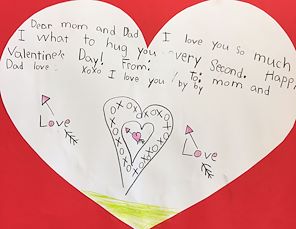 Dear mom and Dad I love you so much
I what to hug you every Second. Happy
Valentine's Day! From: To: mom and
Dad love: xoxo I love you / by by
xoxoxoxoxoxoxoxo
Love
Love